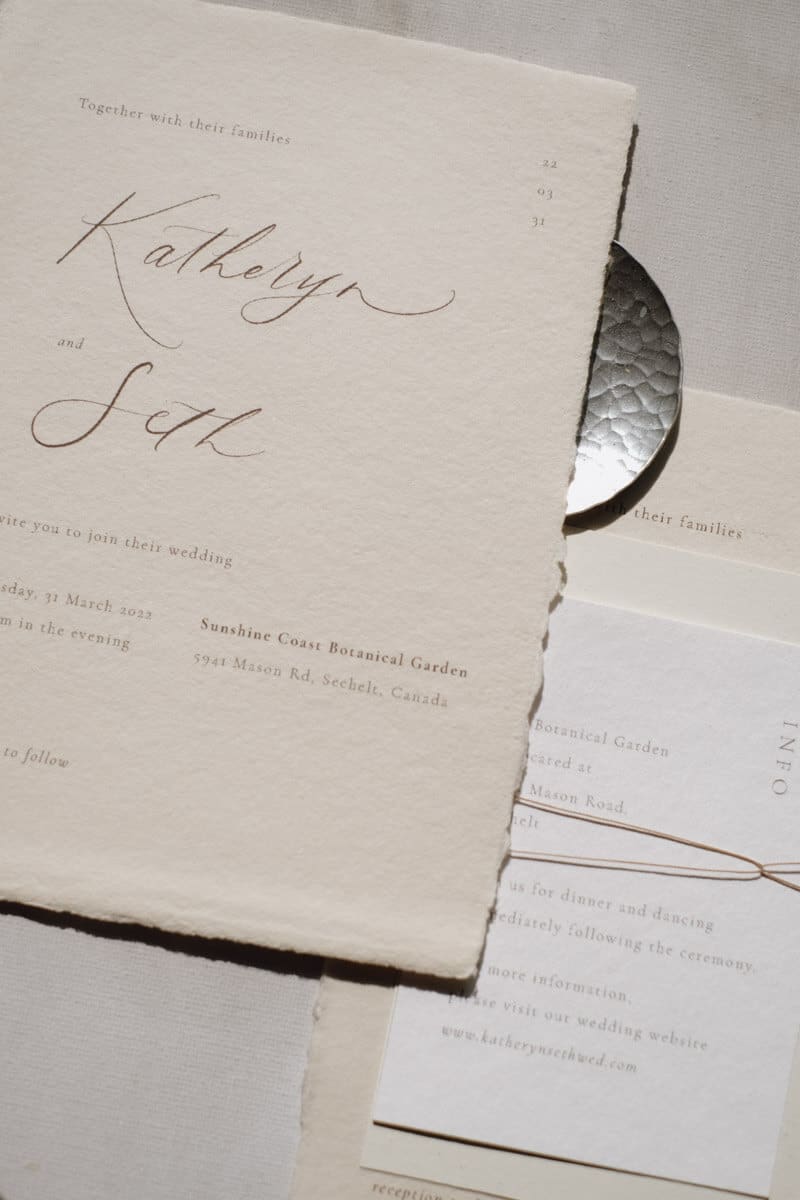 Together with their families
22
03
31
Katheryn
and
Seth
you to join their wedding
31 March 2022
in the evening
Sunshine Coast Botanical Garden
5941 Mason Rd, Sechelt, Canada
to follow
their families
INFO
Botanical Garden
at
Mason Road,
us for dinner and dancing
following the ceremony.
more information,
please visit our wedding website
www.katherynsethwed.com
reception